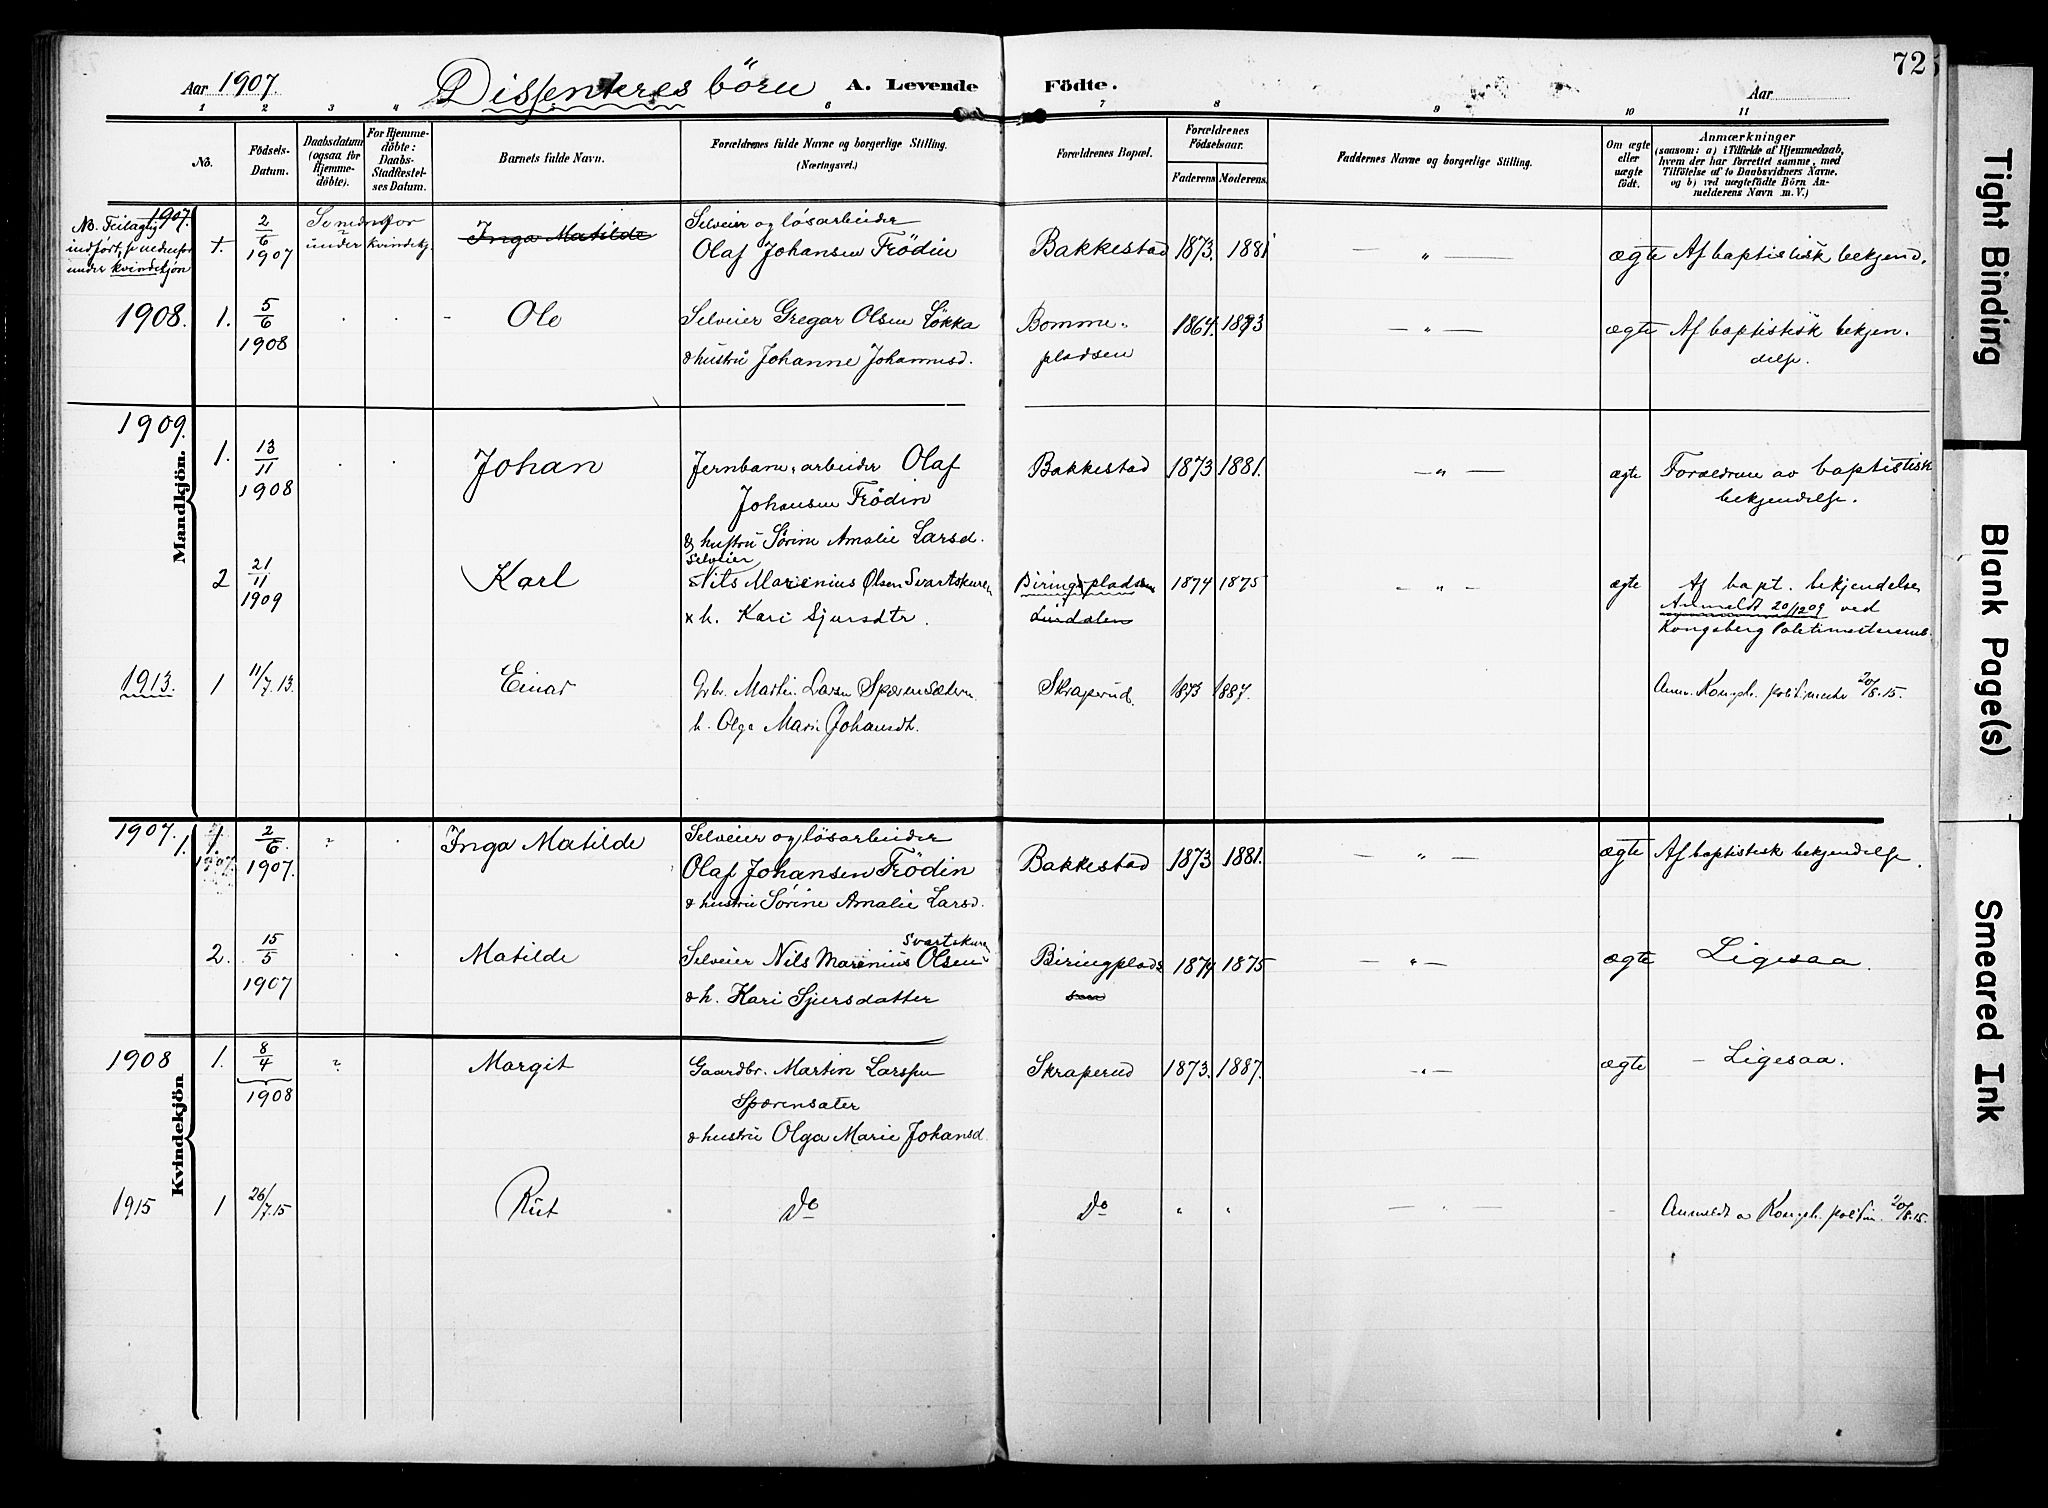 72
Aar 1907.
Dissenteres börn
A. Levende Födte.
Aar
1 2 3 4 6 7 8 9 10 11
No.
Födsels-Datum.
Daabsdatum (ogsaa for Hjemmedöbte).
For Hjemmedöbte: Daabs-Stadfæstelses Datum.
Barnets fulde Navn.
Forældrenes fulde Navne og borgerlige Stilling.
(Næringsvei.)
Forældrenes Bopæl.
Forældrenes Födselsaar.
Faderens Moderens.
Faddernes Navne og borgerlige Stilling.
Om ægte eller uægte födt.
Anmærkninger
(saasom: a) i Tilfælde af Hjemmedaab, hvem der har forrettet samme, med Tilföielse af to Daabsvidners Navne, og b) ved uægtefödte Börn Anmelderens Navn m. V.)
Mandkjön.
1907.
NB. Feilagtig
indfört, se nedenfor
under kvindekjön
2/6 1907
Se nedenfor
under kvindekj.
Inga Matilde
Selveier og løsarbeider
Olaf Johansen Frödin
Bakkestad 1873. 1881 — " — ægte Af baptistisk bekjend.
1908. 1. 5/6 1908
Ole
Selveier Gregar Olsen Løkka
& hustru Johanne Johannesd.
Bomme-
pladsen
1864. 1873 — " — ægte Af baptistisk bekjen-
delse.
1909.
1. 13/11 1908
Johan
Jernbanearbeider Olaf
Johansen Frödin
& hustru Sørine Amalie Larsd.
Bakkestad 1873 1881. — " — ægte Forældrene av baptistisk
bekjendelse.
2 21/11 1909
Karl
Selveier
Nils Marenius Olsen Svartskuren
& h. Kari Sjursdtr.
Biringpladsen
Lurdalen
1874 1875 — " — ægte Af bapt. bekjendelse
Anmeldt 20/12 09 ved
Kongsberg Politimesteremb.
1913. 1 11/7.13.
Einar
Gbr. Martin Larsen Spærensæteren
h. Olga Marie Johansdt.
Skraperud. 1873 1887.
Anm. Kongsb. politimester 20/8.15.
Kvindekjön
1907. 1. 2/6 1907.
Inga Matilde
Selveier og løsarbeider
Olaf Johansen Frödin
& hustru Sørine Amalie Larsd.
Bakkestad 1873 1881. — " — ægte Af baptistisk bekjendelse.
2. 15/5 1907
Matilde
Svartskuren
Selveier Nils Marenius Olsen
& h. Kari Sjursdatter
Biringplads
sen
1874 1875 — " — ægte Ligesaa.
1908 1. 8/4 1908
Margit
Gaardbr. Martin Larssen
Spærensæter
& hustru Olga Marie Johansd.
Skraperud 1873. 1887. — " — ægte — Ligesaa.
1915 1 26/7.15
Rut
Do
Do " " — " — Anmeldt Kongsb. politim. 20/8.15.
Tight Binding
Blank Page(s)
Smeared Ink